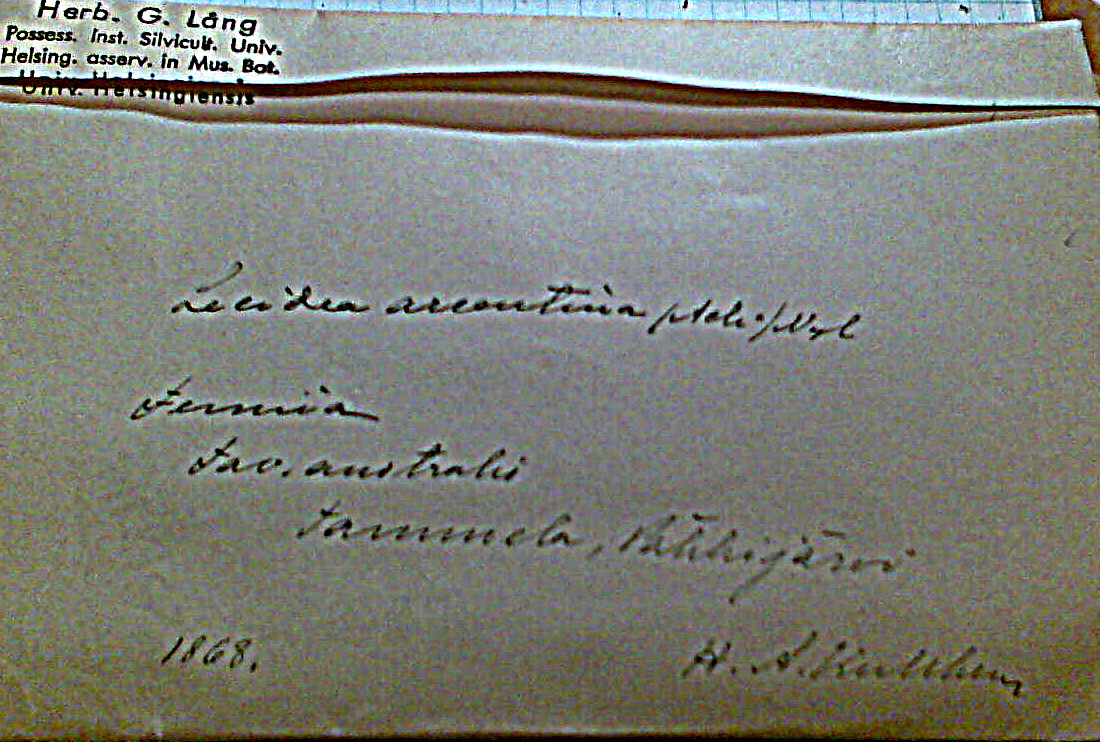 Herb. G. Lång
Possess. Inst. Silvicult. Univ.
Helsing. asserv. in Mus. Bot.
Univ. Helsingiensis
Lecidea arceutina /Ach./Nyl
Fennia
Tav. australis
Tammela,
1868.
H. A.